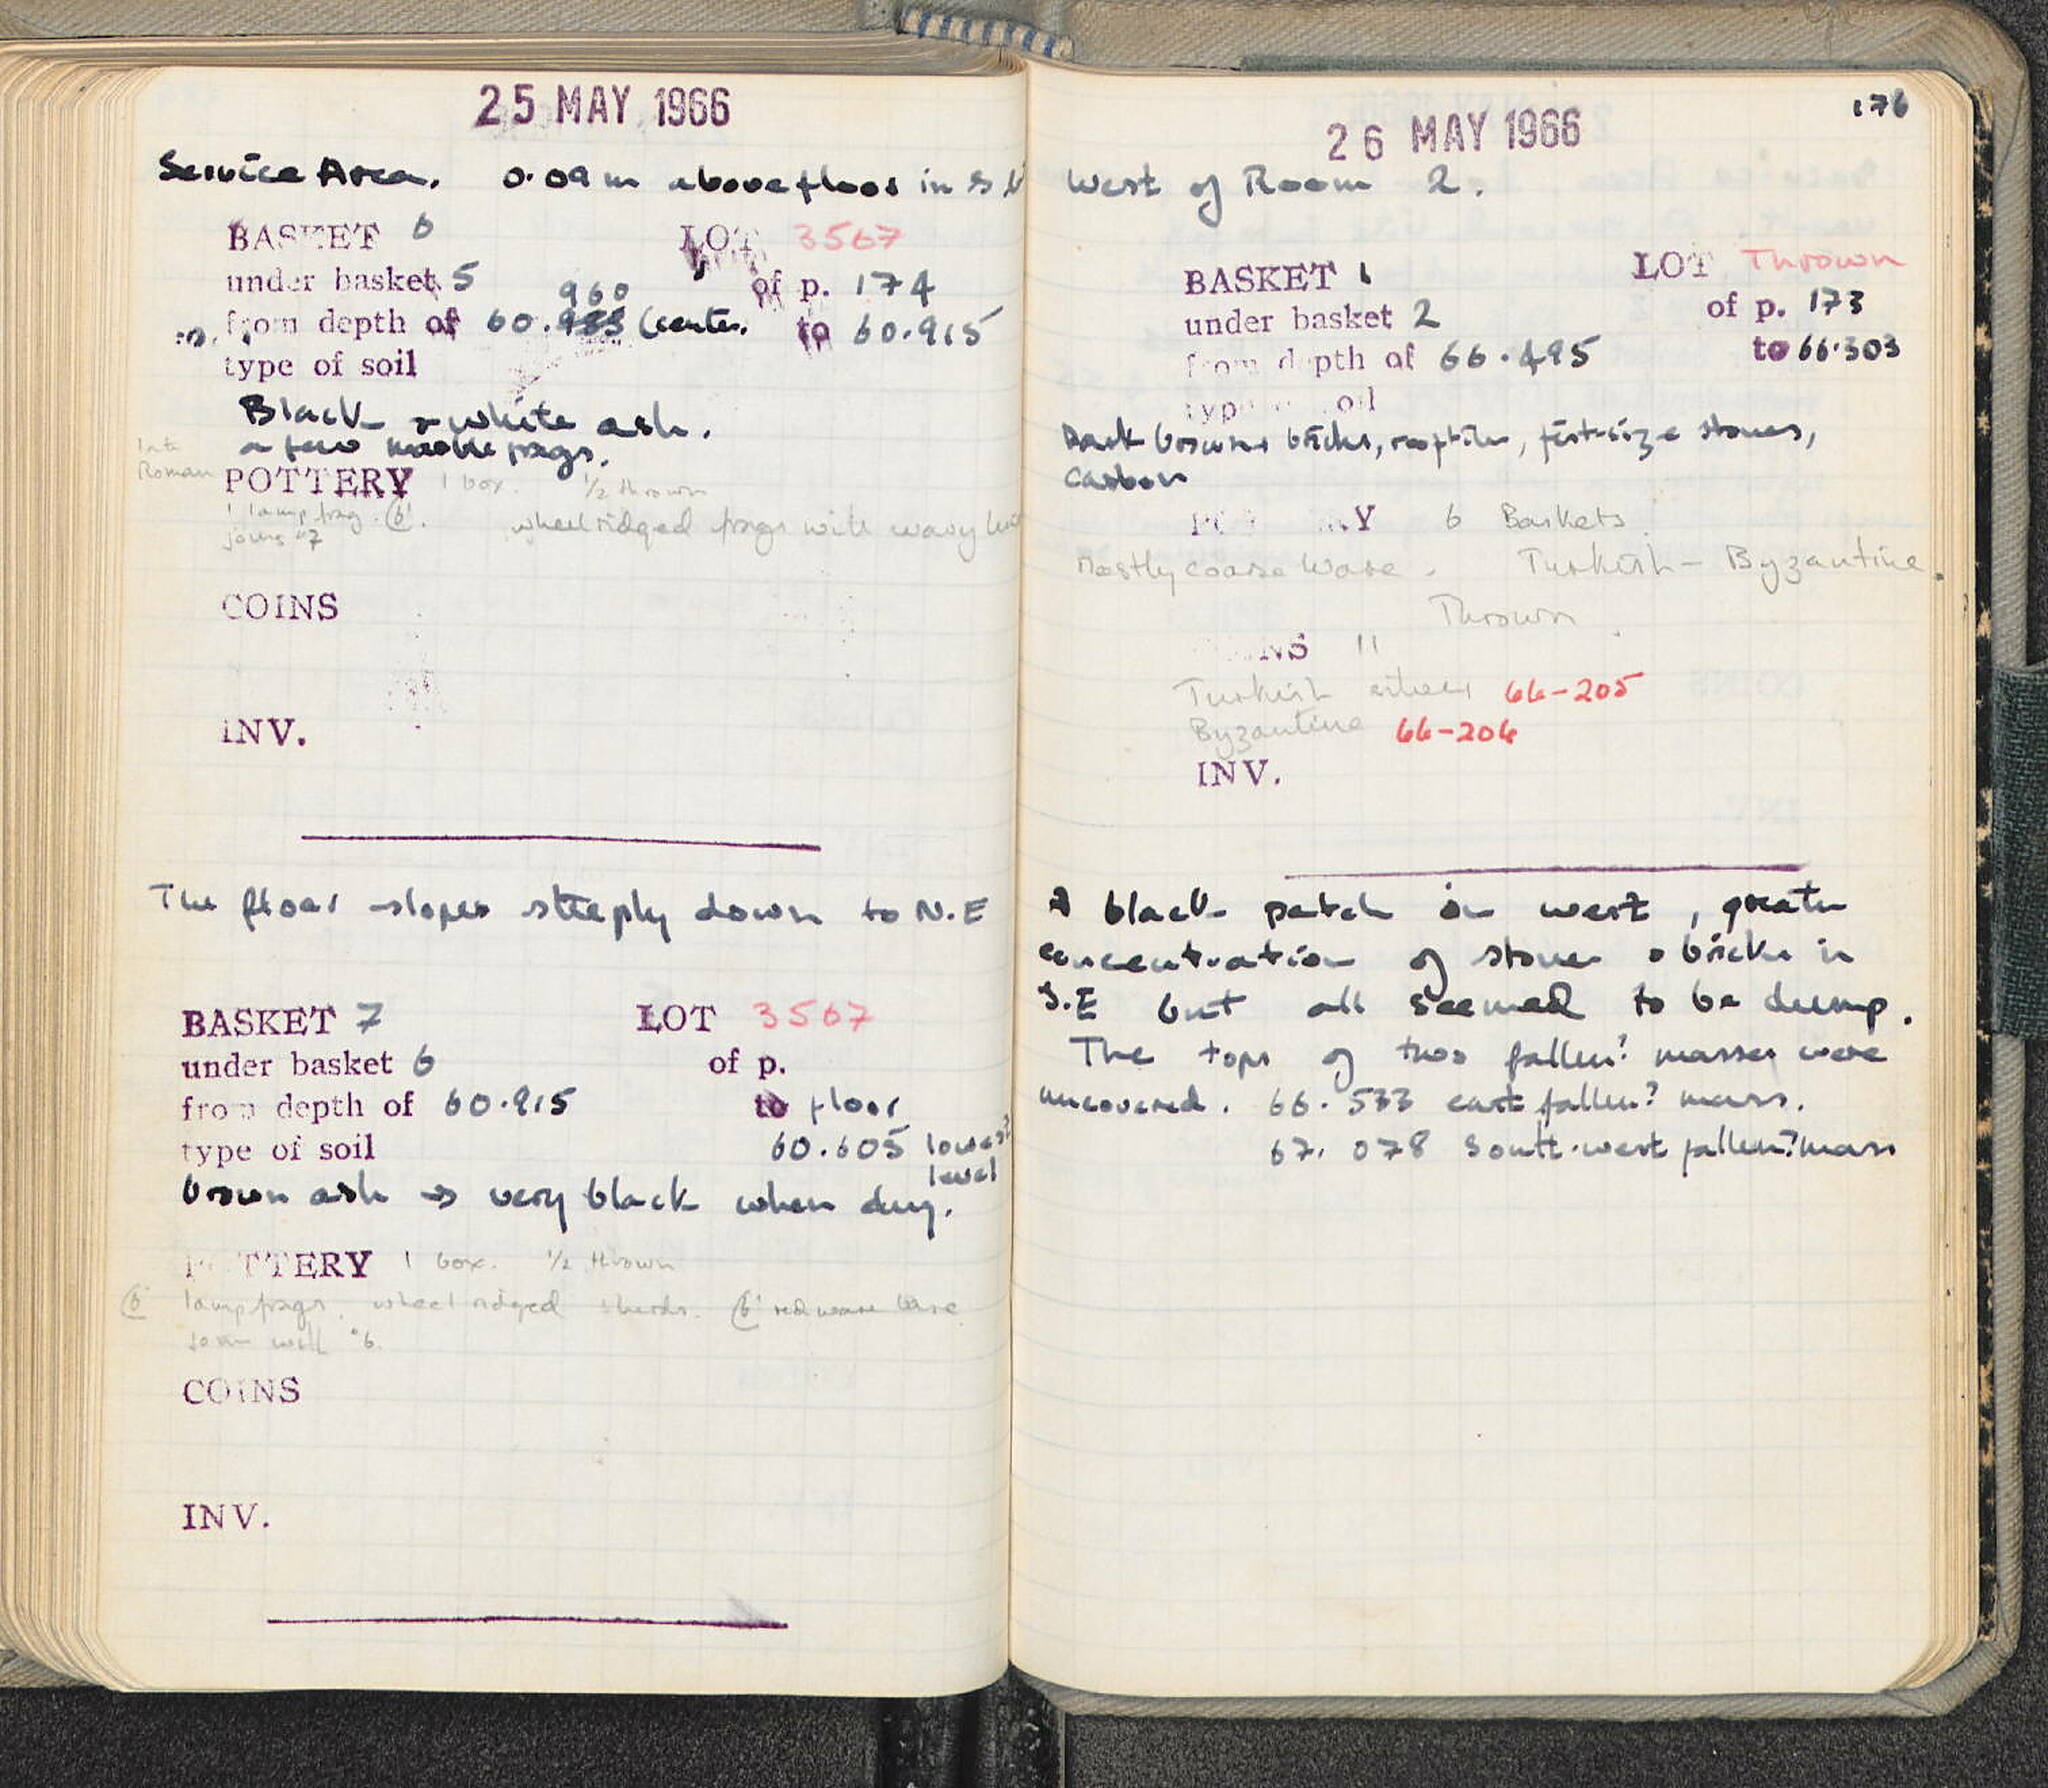 25 MAY 1966
Service Area. 0.09 m above floor in S
BASKET 6 LOT 3567
under basket 5 of p. 174
960
from depth of 60. (center. to 60.915
type of soil
Black & white ash.
a few marble frags.
late
Roman
POTTERY 1 box. 1/2 thrown
1 lamp frag. 6'. wheelridged frags with wavy
joins 7
COINS
INV.
The floor slopes steeply down to N.E
BASKET 7 LOT 3567
under basket 6 of p.
from depth of 60.915 to floor
type of soil 60.605 lowest
level
brown ash → very black when dug.
POTTERY 1 box. 1/2 thrown
6' lamp frags. wheel ridged sherds. 6' red ware base
join with 6.
COINS
INV.
176
26 MAY 1966
West of Room 2.
BASKET 1 LOT Thrown
under basket 2 of p. 173
from depth of 66.495 to 66.303
type soil
Dark brown, bricks, rooftiles, fist-size stones,
carbon
POTTERY 6 Baskets
Mostly coarse ware. Turkish - Byzantine.
Thrown
COINS 11
Turkish silver 66-205
Byzantine 66-206
INV.
A black patch in west, greater
concentration of stones & bricks in
S.E but all seemed to be dump.
The tops of two fallen? masses were
uncovered. 66.533 east fallen? mass.
67.078 South-west fallen? mass